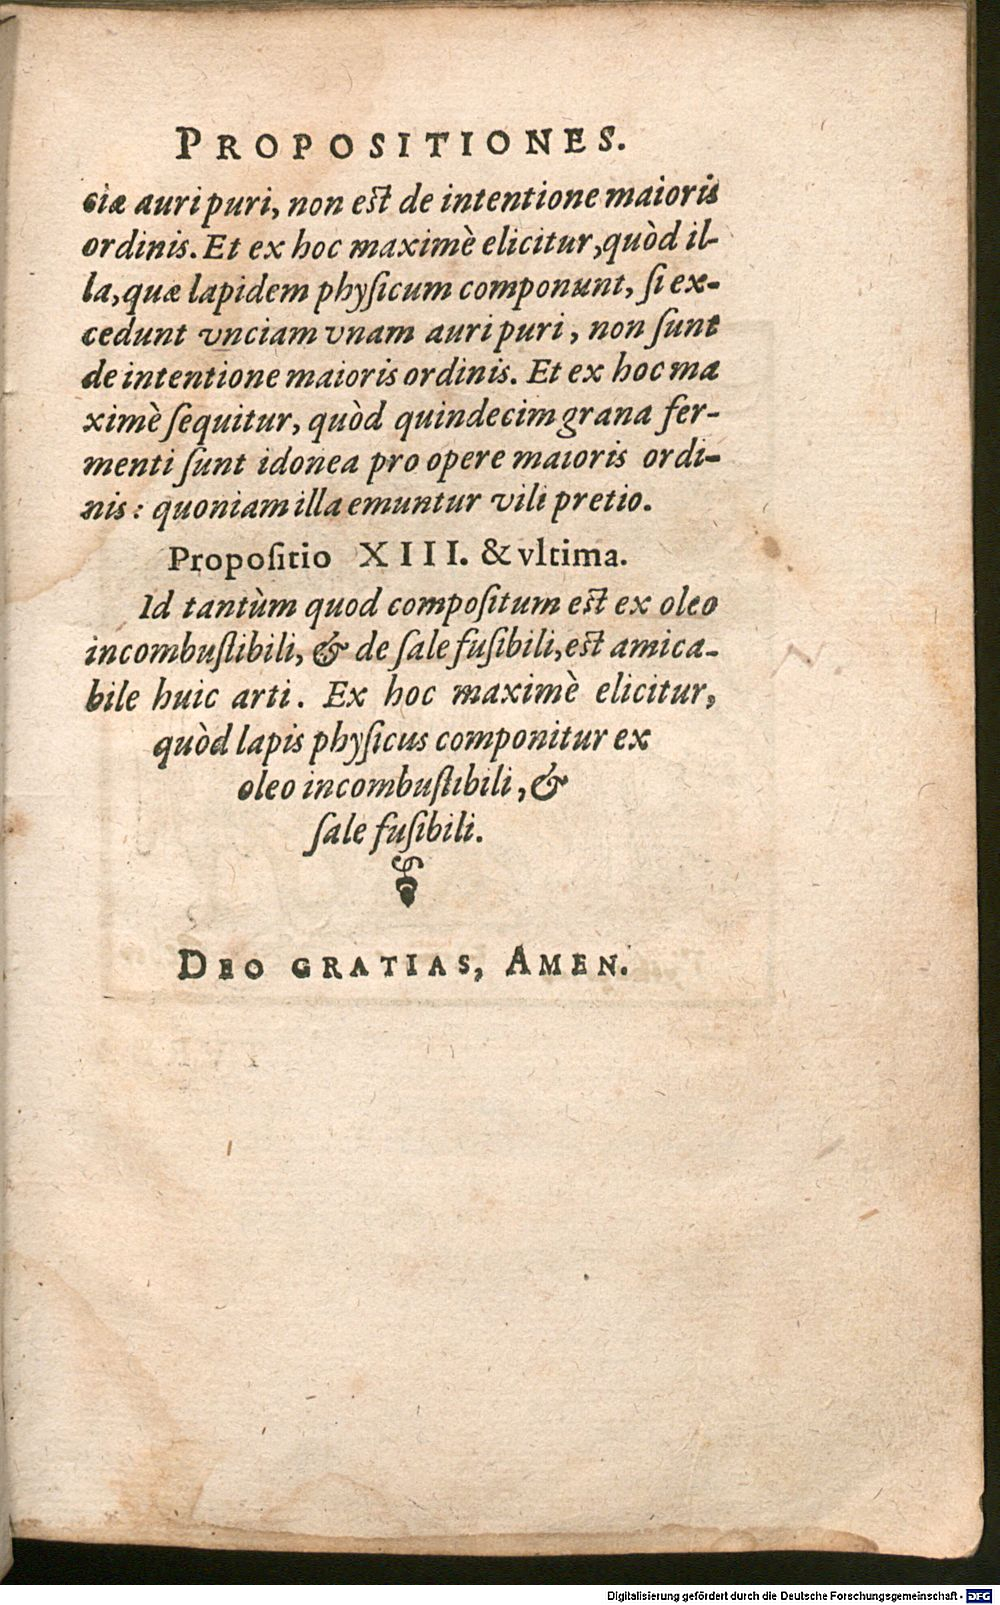 PROPOSITIONES.
ciæ auri puri, non est de intentione maioris
ordinis. Et ex hoc maximè elicitur, quòd il-
la, quæ lapidem physicum componunt, si ex-
cedunt vnciam vnam auri puri, non sunt
de intentione maioris ordinis. Et ex hoc ma
ximè sequitur, quòd quindecim grana fer-
menti sunt idonea pro opere maioris ordi-
nis: quoniam illa emuntur vili pretio.
Propositio XIII. & vltima.
Id tantùm quod compositum est ex oleo
incombustibili, & de sale fusibili, est amica-
bile huic arti. Ex hoc maximè elicitur,
quòd lapis physicus componitur ex
oleo incombustibili, &
sale fusibili.
DEO GRATIAS, AMEN.
Digitalisierung gefördert durch die Deutsche Forschungsgemeinschaft - DFG